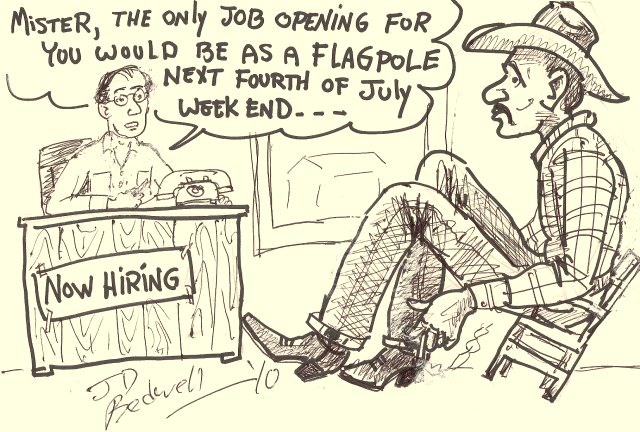 MISTER, THE ONLY JOB OPENING FOR
YOU WOULD BE AS A FLAGPOLE
NEXT FOURTH OF JULY
WEEK END - - -
NOW HIRING
JD
Bedwell '10